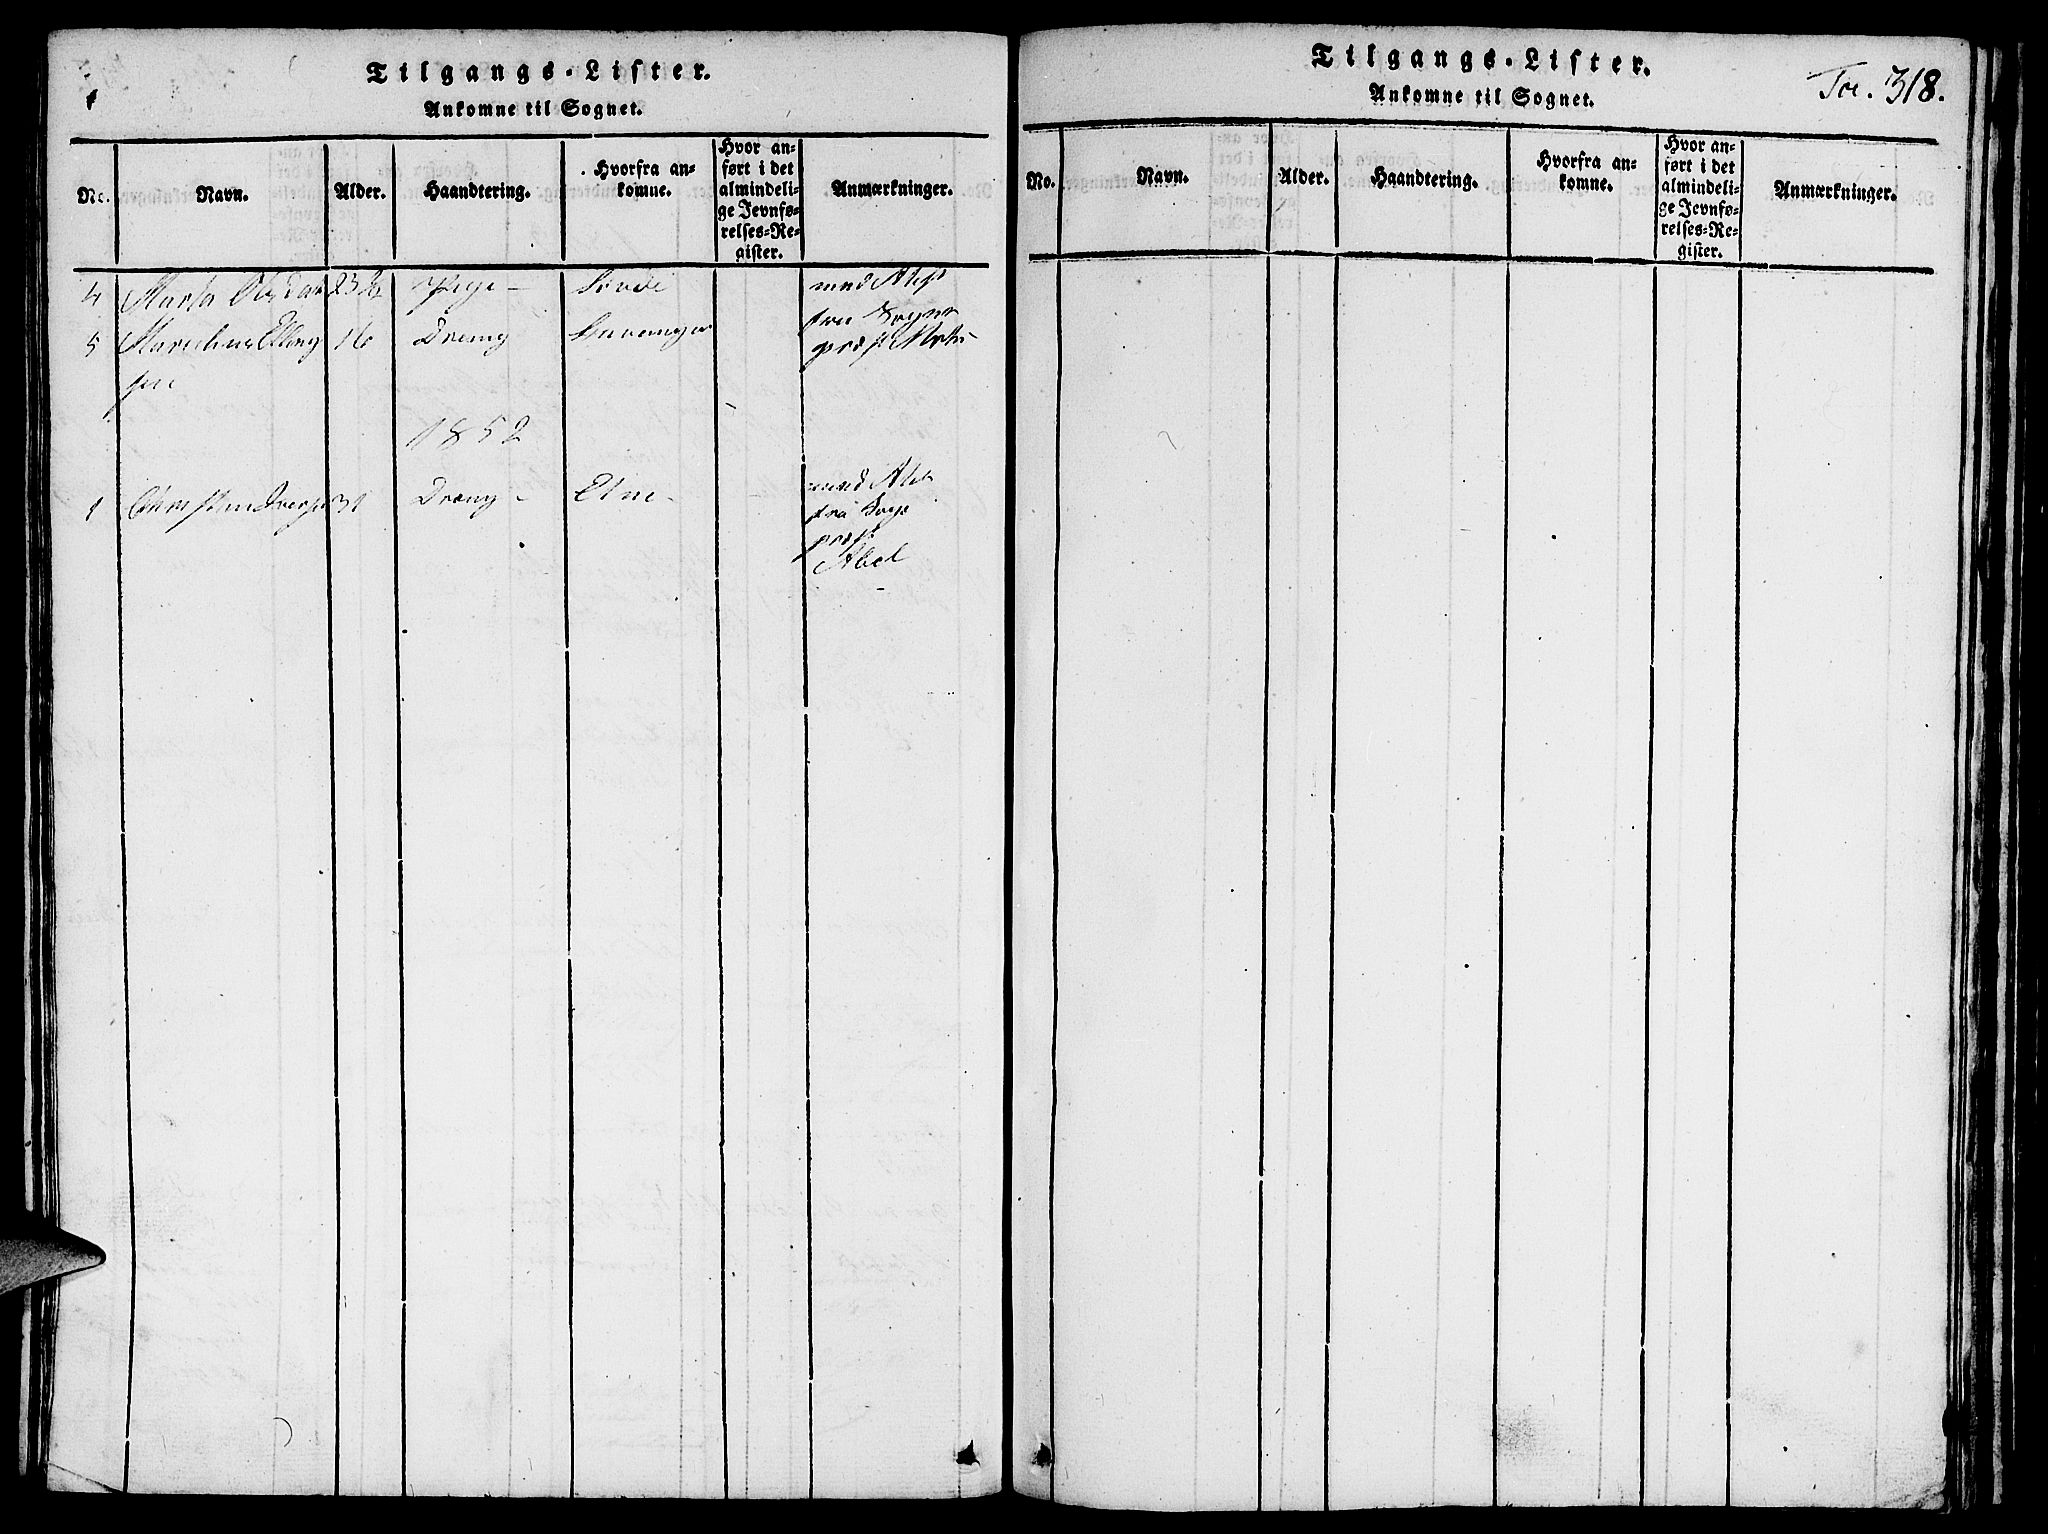 Tilgangs-Lister.
Ankomne til Sognet.
No. Navn. Alder. Haandtering. Hvorfra an-
komne. Hvor an-
ført i det
almindeli-
ge Jevnfø-
relses-Re-
gister. Anmærkninger.
4 Martha 23 Pige - med Att
fra Sogne
5 16 Dreng Stavanger præst
sen
1852
1 31 Dreng - Etne - med Att
fra Sogn
præst
Abel
Tilgangs-Lister.
Ankomne til Sognet.
Foe. 318.
No. Navn. Alder. Haandtering. Hvorfra an-
komne. Hvor an-
ført i det
almindeli-
ge Jevnfø-
relses-Re-
gister. Anmærkninger.